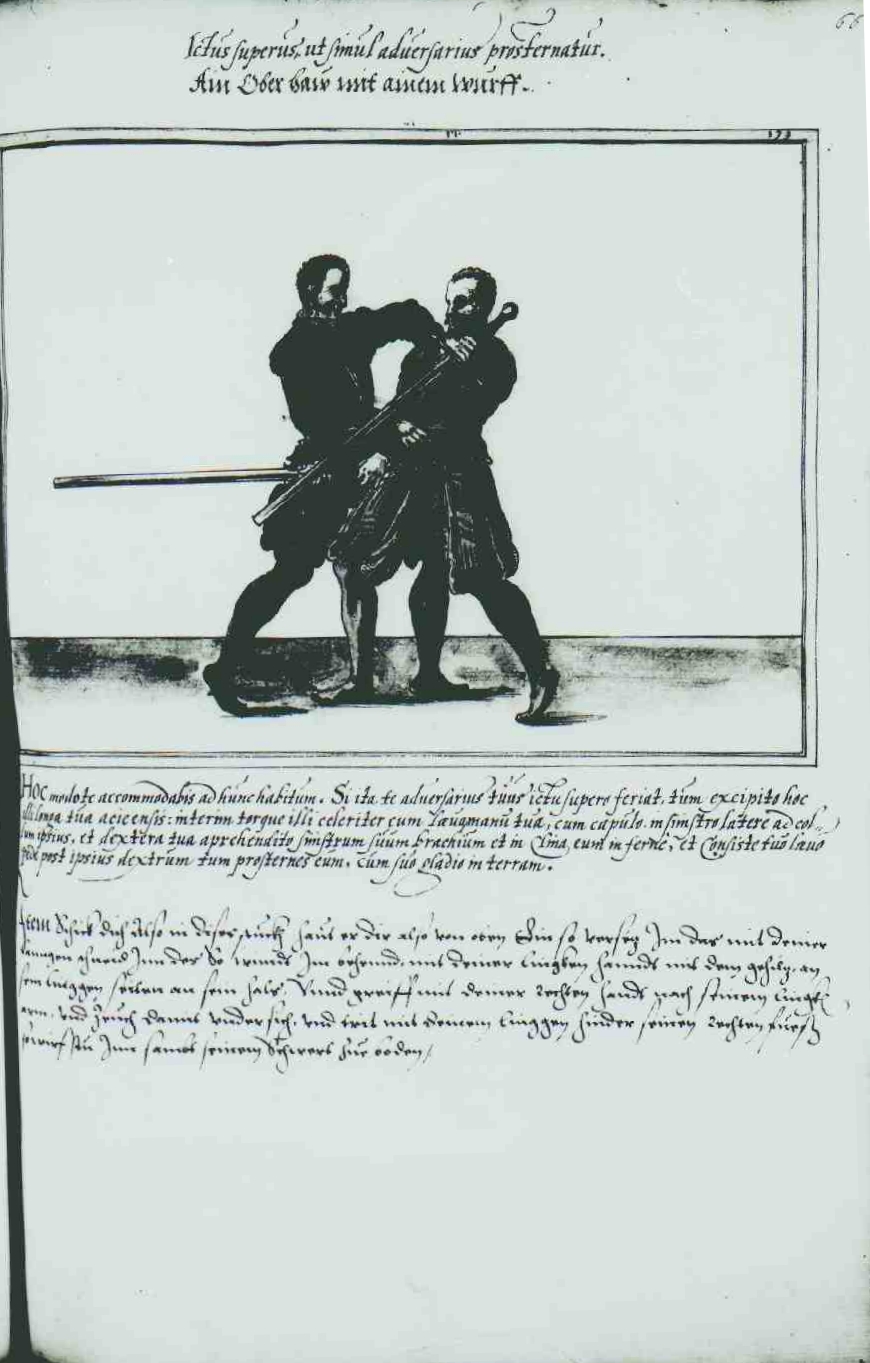 66
Ictus superus, ut simul adversarius prosternatur.
Ain Ober haw mit ainem wurff.
Hoc modo te accommodabis ad hunc habitum. Si ita te adversarius tuus ictu supero feriat, tum excipito hoc
longa tua acie ensis: interim torque illi celeriter cum laeva manu tua, cum capulo in sinistro latere ad col-
lum ipsius, et dextera tua aprehendito sinistrum suum brachium et in ima eum inferne, et Consiste tuo laevo
pede post ipsius dextrum tum prosternes eum, cum suo gladio in terram.
Item Schick dich Also in diser stuckh haut er dir also von oben Ein so versetz Im das mit deiner
lanngen schneid Inn des So wind Im behend mit deiner lingkhen hannd mit dem gehiltz an
sein linggen seiten an sein hals, Unnd greiff mit deiner rechten hand nach seinem lingkh
arm, und zeuch damit undersich, und trit mit deinem linggen hinder seinen rechten fuess
so wirfstu Inn sambt seinem Schwert zue boden,